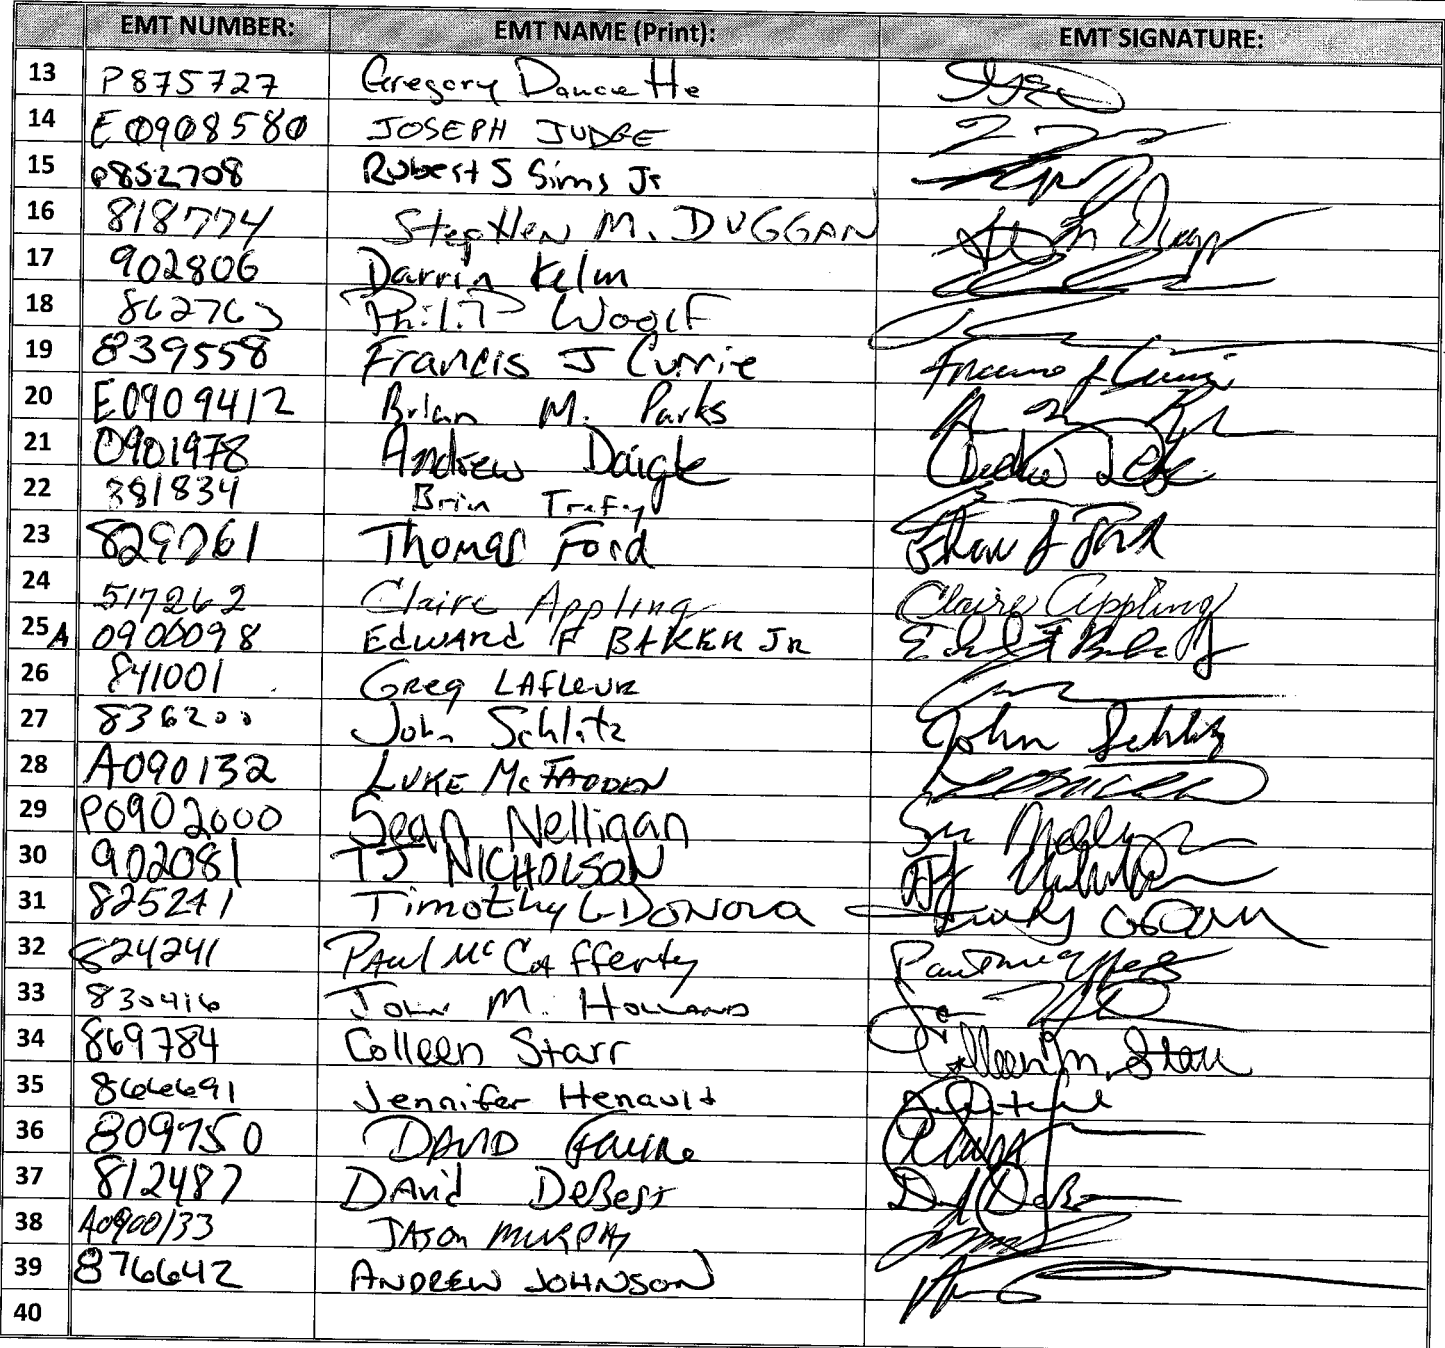 EMT NUMBER: EMT NAME (Print): EMT SIGNATURE:
13 P875727 Gregory
14 E0908580 JOSEPH JUDGE
15 P852708 Robert S Sims Jr
16 818774 Stephen M. DUGGAN
17 902806 Darrin Kelm
18 862763 Philip Woolf
19 839558 Francis J Currie Francis J Currie
20 E0909412 Brian M. Parks
21 0901978 Andrew Daigle
22 381834 Brin
23 829761 Thomas Ford Thomas J Ford
24 517262 Claire Appling Claire Appling
25 A 0900098 Edward F BAKER JR
26 841001 Greg LAfleur
27 836200 John Schlitz John Schlitz
28 A090132 LUKE McFADDEN
29 P0902000 Sean Nelligan
30 902081 TJ NICHOLSON
31 825241 Timothy
32 824241 PAul McCafferty
33 830416 John M. Holland
34 869784 Colleen Starr Colleen M. Starr
35 866691 Jennifer Henault
36 809750 DAVID
37 812487 DAvid DeBest
38 A0900133 JAson MURPHy
39 876642 ANDREW JOHNSON
40